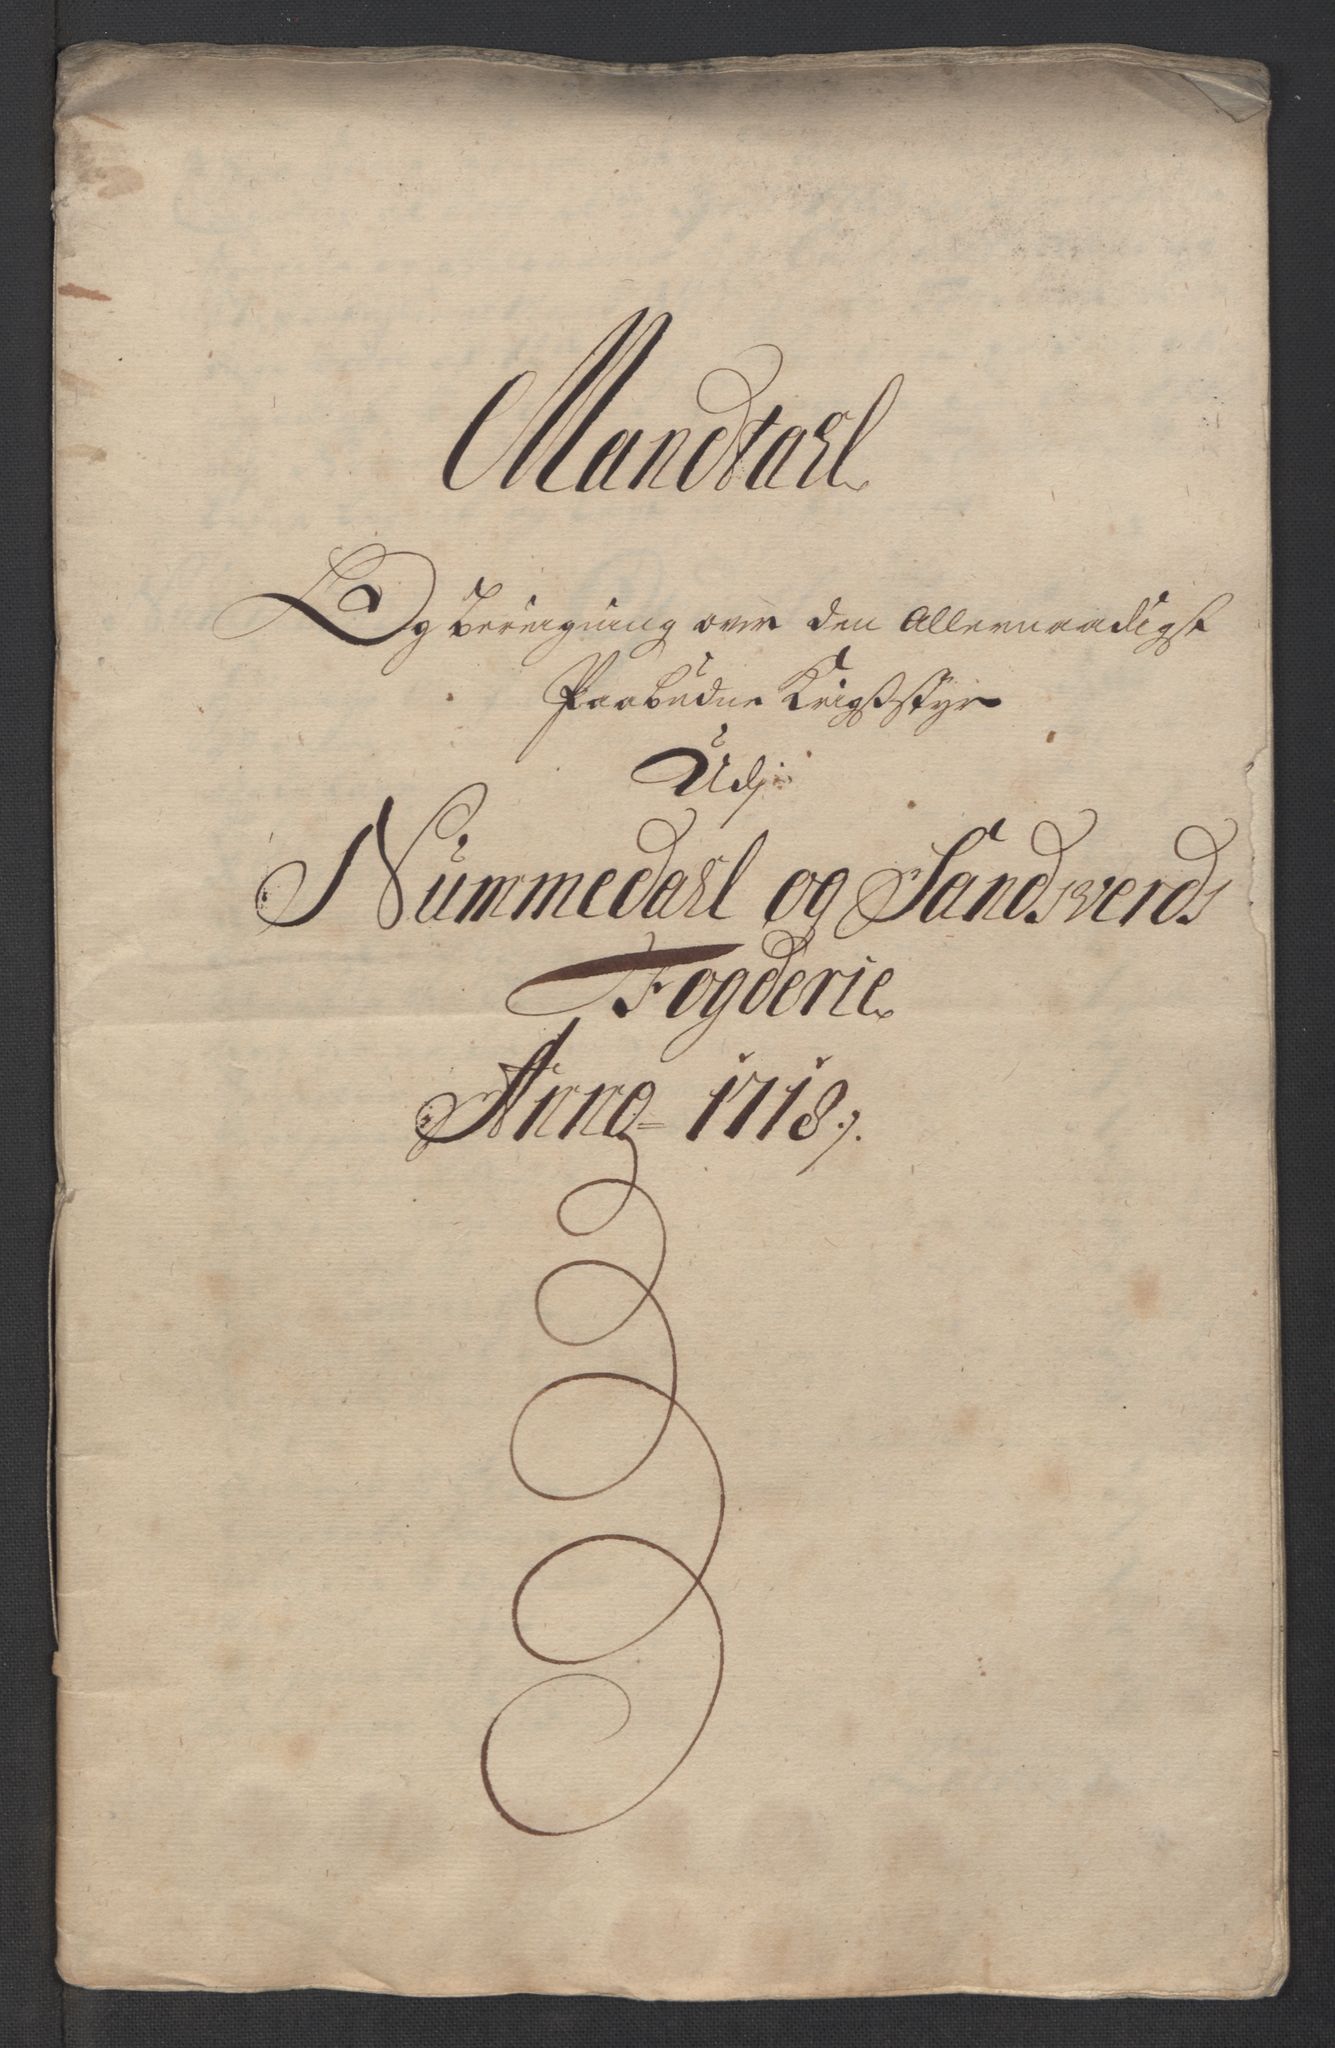 Mandtall
Og bereigning over den Allernaadigst
Paabudne Krigsstyr
Udj
Nummedall og Sandsverds
Fogderie
Anno 1718